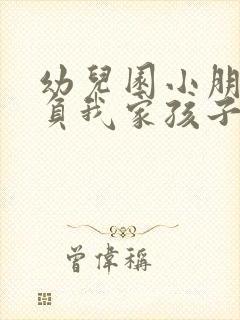 幼兒園小朋
負我家孩子
曾偉稱